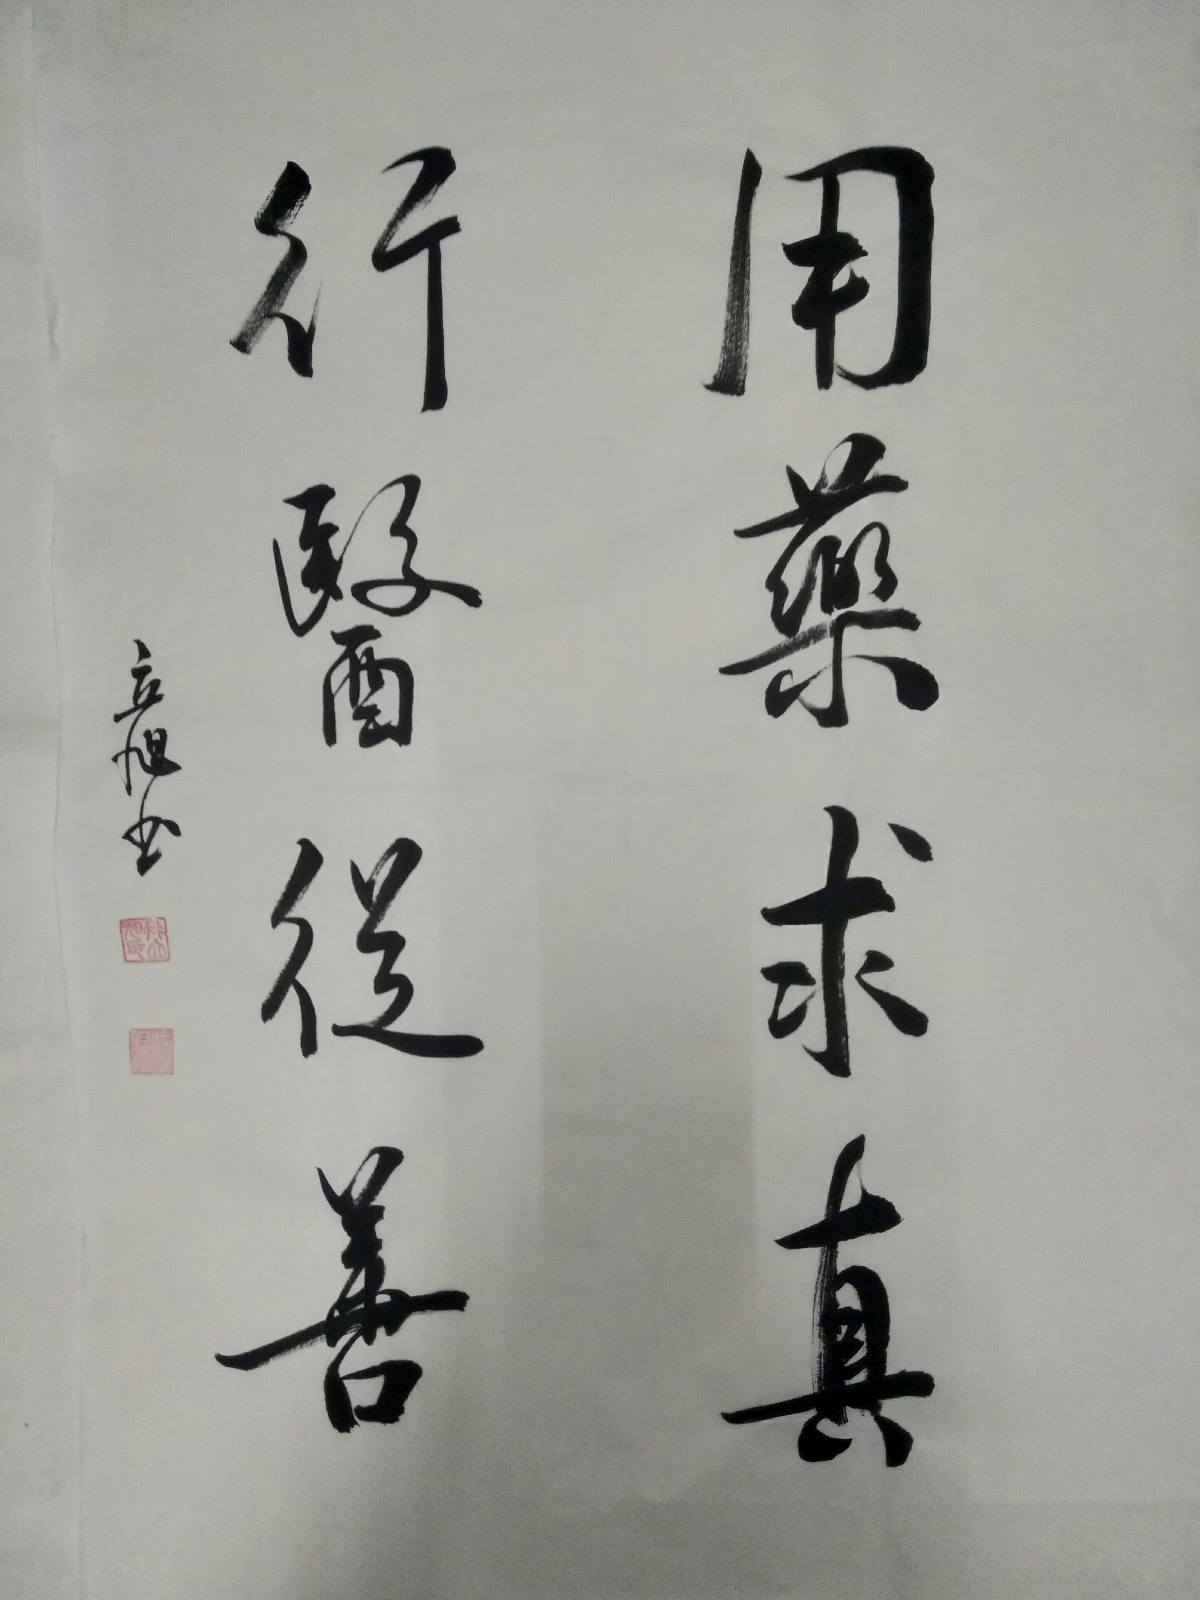 用藥求真
行醫從善
立旭书